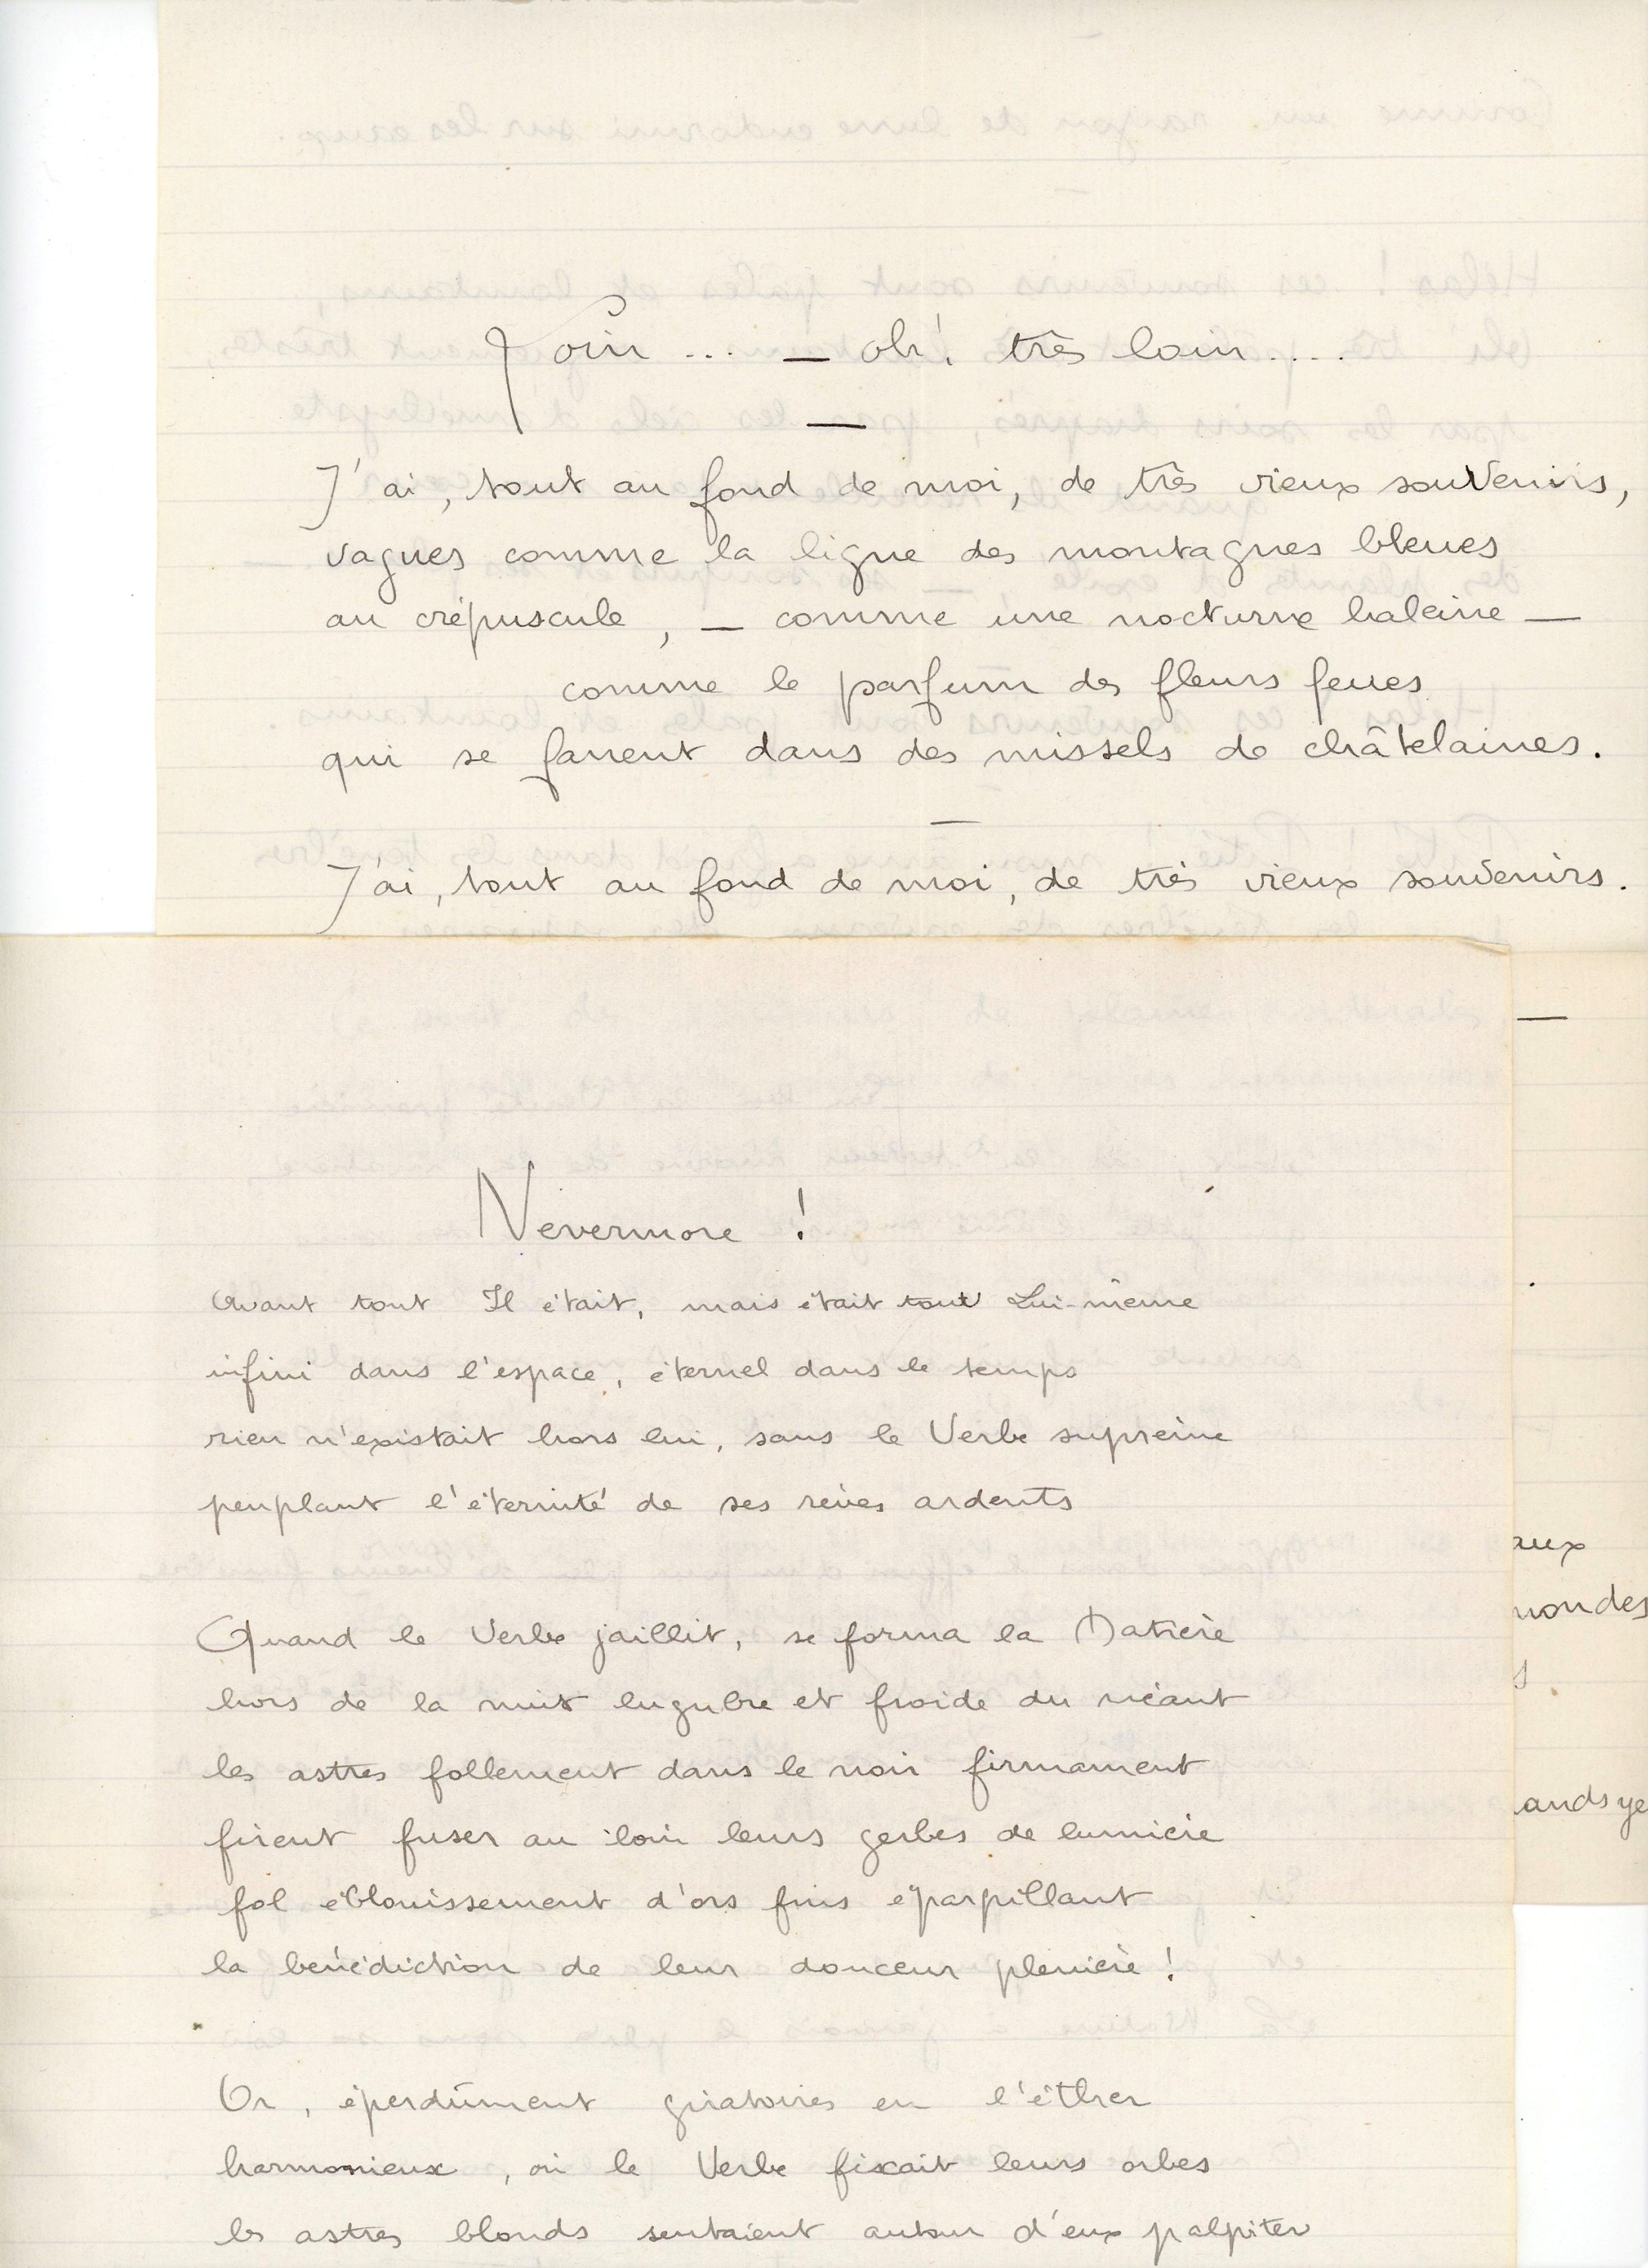 Loin ... — oh! très loin....
—
J'ai, tout au fond de moi, de très vieux souvenirs,
vagues comme la ligne des montagnes bleues
au crépuscule, — comme une nocturne haleine —
comme le parfum des fleurs feues
qui se fanent dans des missels de châtelaines.
—
J'ai, tout au fond de moi, de très vieux souvenirs.
Nevermore !
Avant tout Il était, mais était tout Lui-même
infini dans l'espace, éternel dans le temps
rien n'existait hors lui, sans le Verbe suprème
peuplant l'éternité de ses rêves ardents
Quand le Verbe jaillit, se forma la Matière
hors de la nuit lugubre et froide du néant
les astres follement dans le noir firmament
firent fuser au loin leurs gerbes de lumière
fol éblouissement d'ors fins éparpillant
la bénédiction de leur douceur plenière !
Or, éperdûment giratoires en l'éther
harmonieux, où le Verbe fixait leurs orbes
les astres blonds sentaient autour d'eux palpiter
aux
mondes
s
ands ye